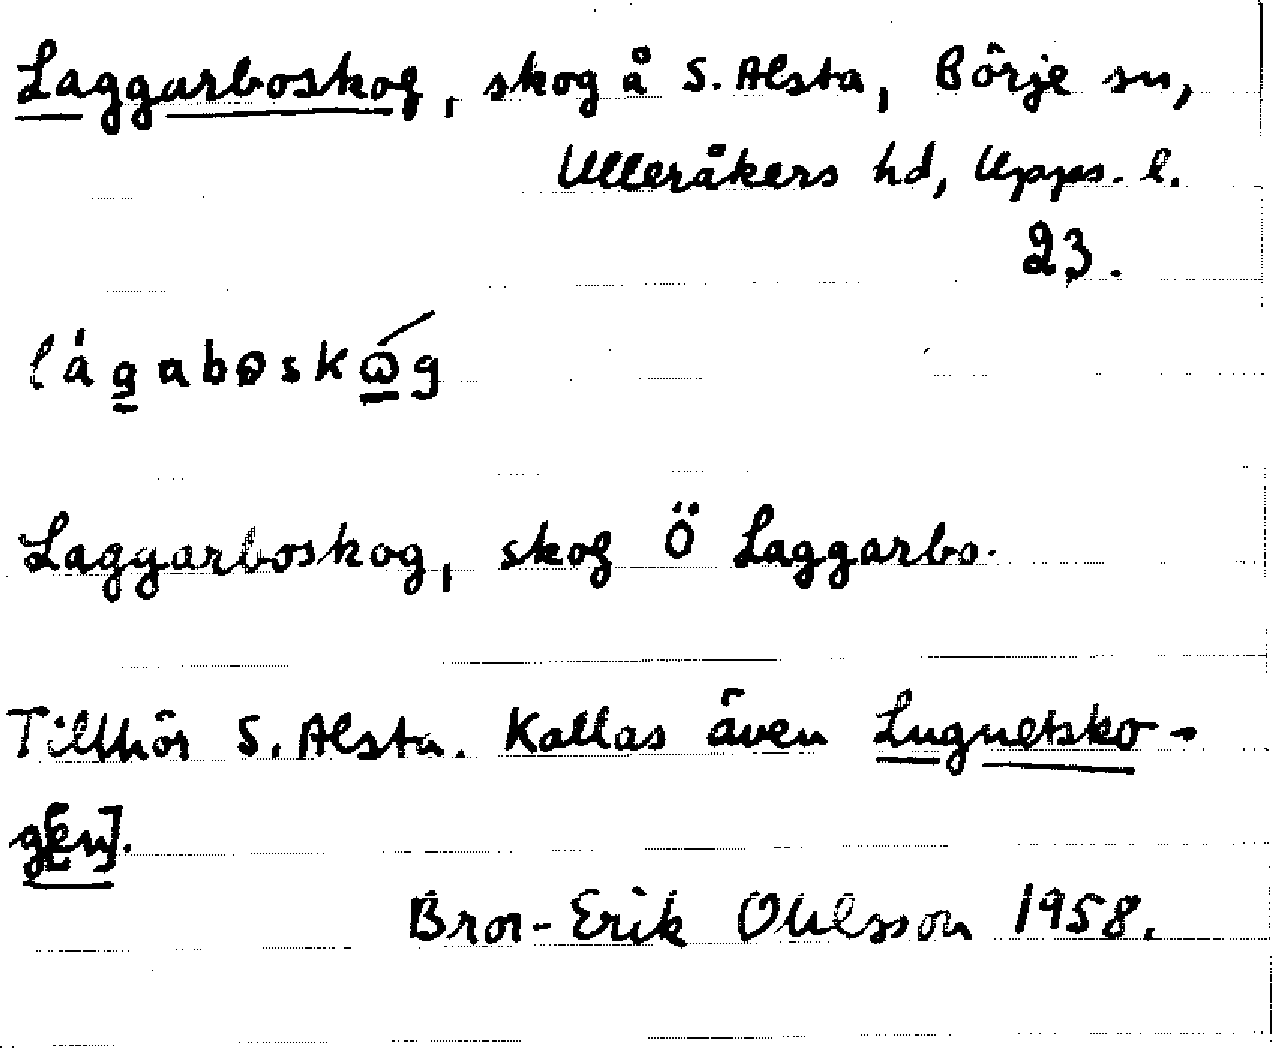 Laggarboskog, skog å S. Alsta, Börje sn,
Ulleråkers hd, Upps. l.
23.
lágaboskωg
Laggarboskog, skog Ö Laggarbo.
Tillhör S. Alsta. Kallas även Lugnetsko-
g[en].
Bror-Erik Ohlsson 1958.